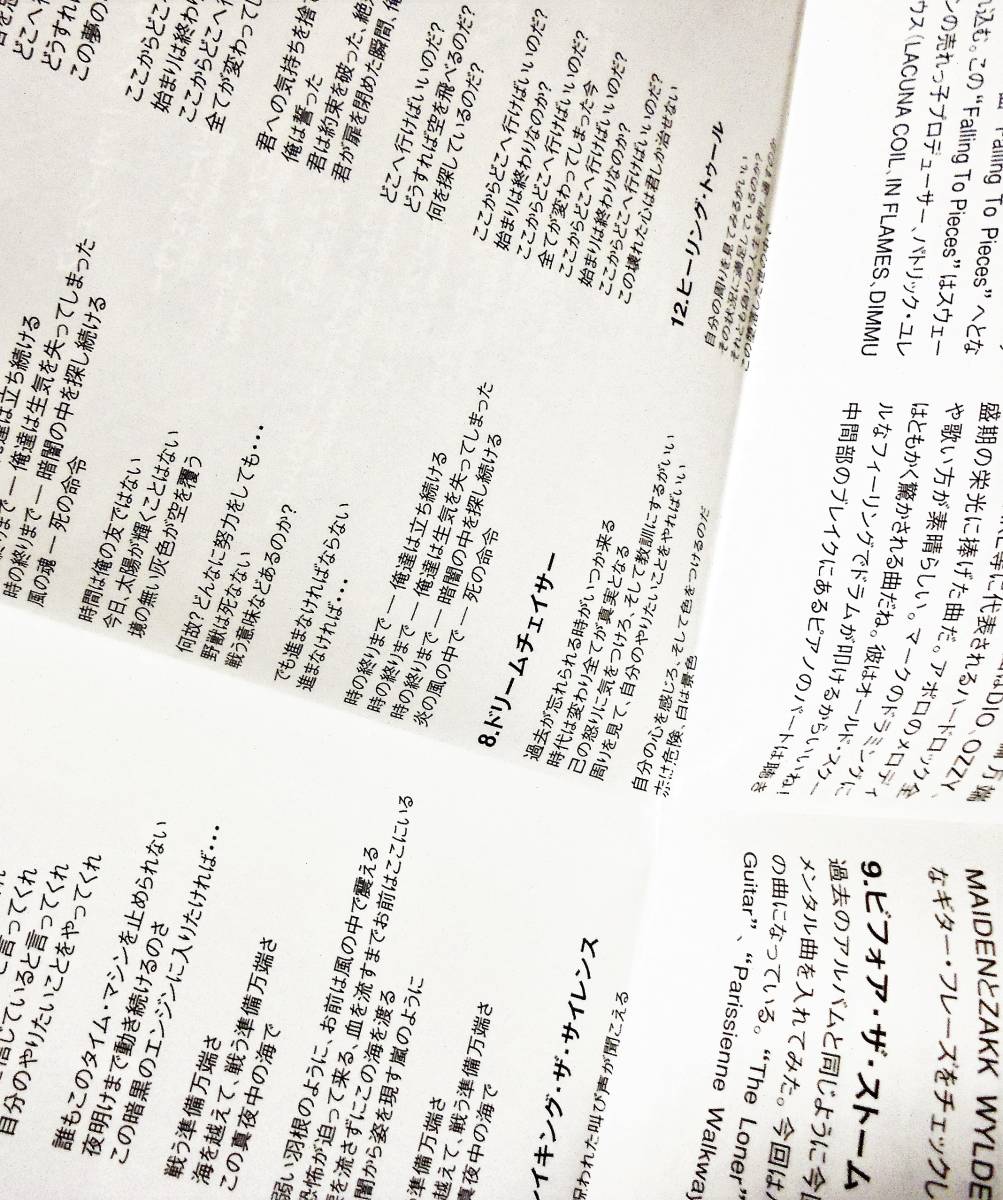 どこへ
どうすれ
この夢の
ここからどこ
始まりは終わり
ここからどこへ行
全てが変わって
君への気持ちを捨
俺は誓った
君は約束を破った、絶
君が扉を閉めた瞬間、俺
どこへ行けばいいのだ?
どうすれば空を飛べるのだ?
何を探しているのだ?
ここからどこへ行けばいいのだ?
始まりは終わりなのか?
ここからどこへ行けばいいのだ?
全てが変わってしまった今
ここからどこへ行けばいいのだ?
始まりは終わりなのか?
ここからどこへ行けばいいのだ?
この壊れた心は君しか治せない
12.ヒーリング・トゥール
自分の周りを見てみるがいい
その状況に満足しているのか?
達は立ち続ける
時の終りまで ― 俺達は生気を失ってしまった
風の魂 ― 暗闇の中を探し続ける
死の命令
時間は俺の友ではない
今日、太陽が輝くことはない
境の無い灰色が空を覆う
何故?どんなに努力をしても・・・
野獣は死なない
戦う意味などあるのか?
でも進まなければならない
進まなければ・・・
時の終りまで ― 俺達は立ち続ける
時の終りまで ― 俺達は生気を失ってしまった
時の終りまで ― 暗闇の中を探し続ける
炎の風の中で ― 死の命令
8.ドリームチェイサー
過去が忘れられる時がいつか来る
時代は変わり全てが真実となる
己の怒りに気をつけろ、そして教訓にするがいい
周りを見て、自分のやりたいことをやればいい
自分の心を感じろ、そして色をつけるのだ
赤は危険、白は景色
と言ってくれ
信じていると言ってくれ
自分のやりたいことをやってくれ
誰もこのタイム・マシンを止められない
夜明けまで動き続けるのさ
この暗黒のエンジンに入りたければ・・・
戦う準備万端さ
海を越えて、戦う準備万端さ
この真夜中の海で
弱い羽根のように、お前は風の中で震える
恐怖が迫って来る、血を流すまでお前はここにいる
を流さずにこの海を渡る
闇から姿を現す嵐のように
準備万端さ
越えて、戦う準備万端さ
真夜中の海で
イキング・ザ・サイレンス
呪われた叫び声が聞こえる
れ込む。この“Falling To Pieces”はスウェー
ンの売れっ子プロデューサー、パトリック・ユレ
ウス(LACUNA COIL、IN FLAMES、DIMMU
DIO、OZZY、
盛期の栄光に捧げた曲だ。アポロのメロディ
や歌い方が素晴らしい。マークのドラミングに
はともかく驚かされる曲だね。彼はオールド・スクー
ルなフィーリングでドラムが叩けるからいいね!
中間部のブレイクにあるピアノのパートは聴き
MAIDENとZAKK WYLDE
なギター・フレーズをチェックし
9.ビフォア・ザ・ストーム
過去のアルバムと同じように今回
メンタル曲を入れてみた。今回は
の曲になっている。“The Loner”
Guitar”、“Parissienne Walkway